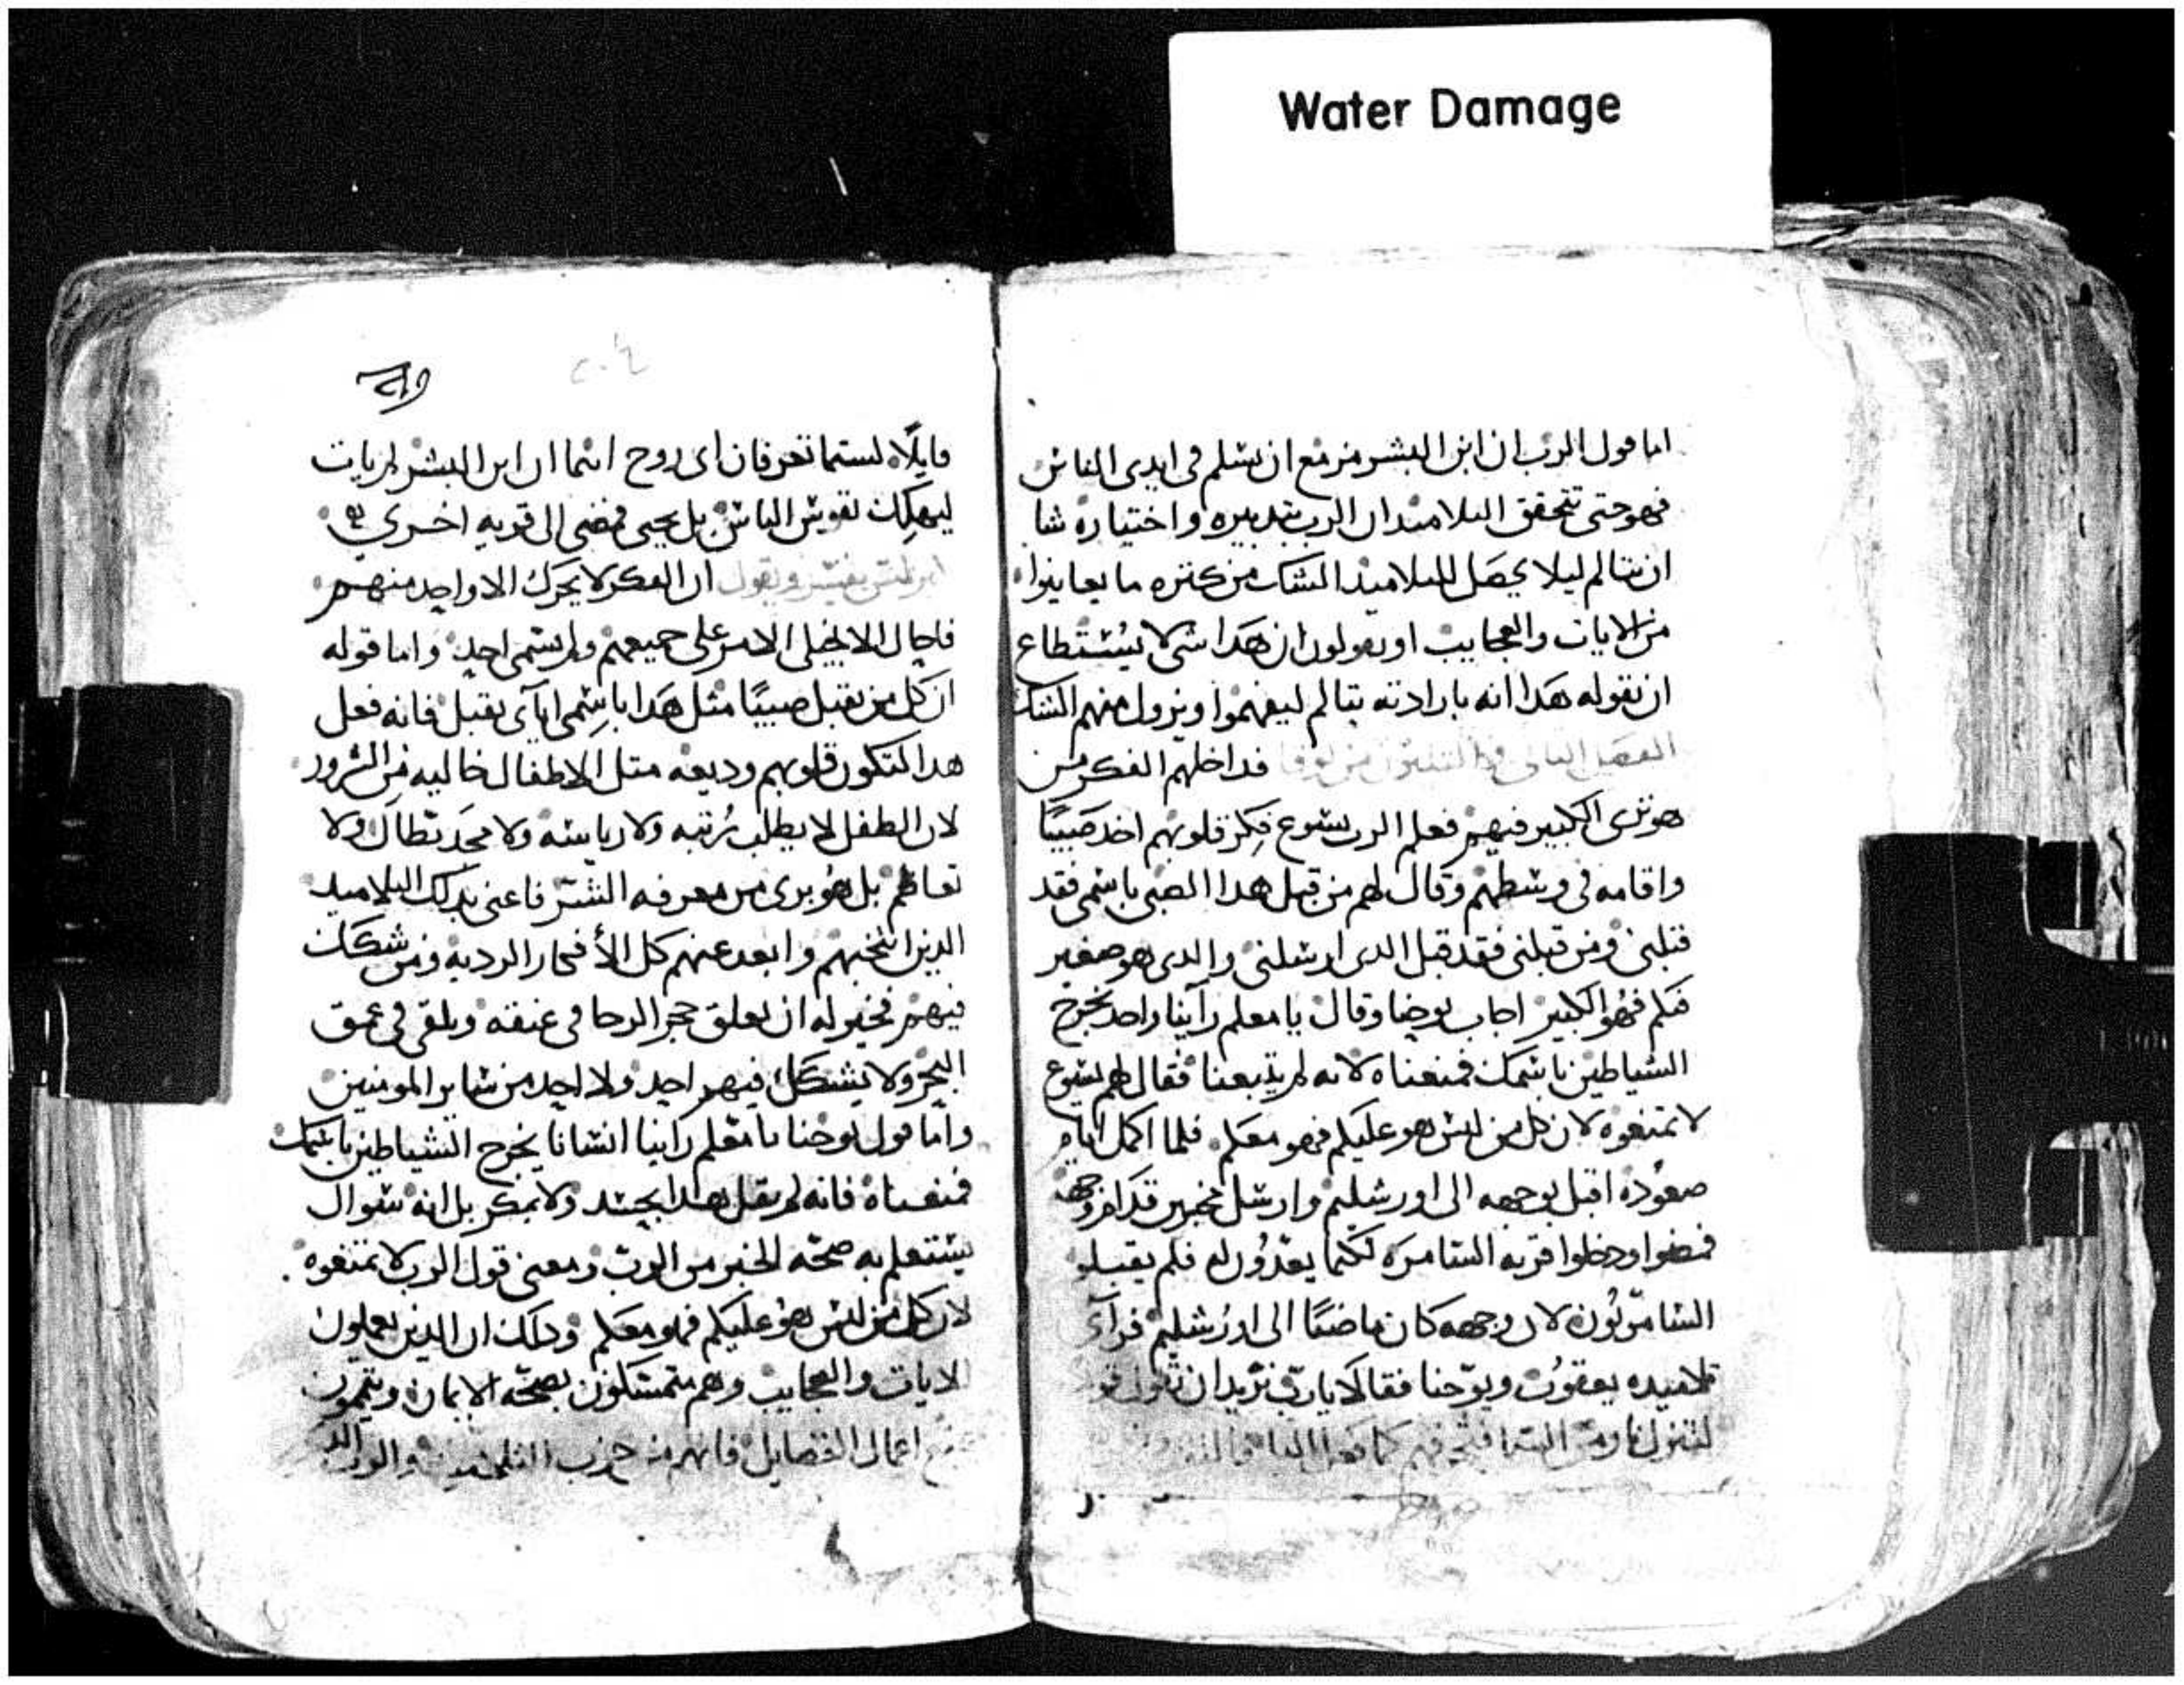 Water Damage
اما قول الرب ان ابن البشر مزمع ان يسلم في ايدي الناس
فهو حتى تتحقق التلاميد ان الرب بتدبيره واختياره شا
ان يتالم ليلا يحصل للتلاميد الشك من كتره ما يعاينوا
من الايات والعجايب او يقولون ان هدا شي لا يستطاع
ان بقوله هدا انه بارادته يتالم ليفهموا ويزول منهم الشك
الفصل من لوقا فداخلهم الفكر من
هو ترى الكبير فيهم فعلم الرب يسوع فكر قلوبهم اخد صبيا
واقامه في وسطهم وقال لهم من قبل هدا الصبي باسمي فقد
قبلني ومن قبلني فقد قبل الدي ارسلني والدي هو صغير
فيكم فهو الكبير اجاب يوحنا وقال يا معلم راينا واحد يخرج
الشياطين باسمك فمنعناه لانه لم يتبعنا فقال لهم يسوع
لا تمنعوه لان كل من ليس هو عليكم فهو معكم فلما اكمل ايام
صعوده اقبل بوجهه الى اورشليم وارسل مخبرين قدام وجهه
فمضوا ودخلوا قريه السامره لكيما يعدون له فلم يقبلو
السامريون لان وجهه كان ماضيا الى اورشليم فراى
تلاميده يعقوب ويوحنا فقالا يارب تريد ان نقول
لتنزل نار من السما كما فعل
٢٠٤
قايلا لستما تعرفان اي روح انتما ان ابن البشر لم يات
ليهلك نفوس الناس بل يحيى فمضى الى قريه اخرى
يفسر ويقول ان الفكر لا يحرك الا واحد منهم
فاحال الانجيلي الامر على جميعهم ولم يسمى احد واما قوله
ان كل من يقبل صبيا مثل هدا باسمي اياي يقبل فانه فعل
هدا لتكون قلوبهم وديعه متل الاطفال خاليه من الشرور
لان الطفل لا يطلب رتبه ولا رياسه ولا مجد بطال ولا
تعاظم بل هو بري من معرفه الشر فاعنى بدلك التلاميد
الدين انتخبهم وابعد عنهم كل الافكار الرديه ومن شكك
فيهم فخير له ان يعلق حجر الرحا في عنقه ويلقى في عمق
البحر ولا يشكك فيهم احد ولا احد من ساير المومنين
واما قول يوحنا يا معلم راينا انسانا يخرج الشياطين باسمك
فمنعناه فانه لم يقل هدا بحسد ولا بمكر بل انه سوال
يستعلم به صحه الخبر من الرب ومعنى قول الرب لا تمنعوه
لان كل من ليس هو عليكم فهو معكم ودلك ان الدين يعملون
الايات والعجايب وهم متمسكون بصحه الايمان ويتممون
اعمال الفضايل فانهم من حزب التلاميد